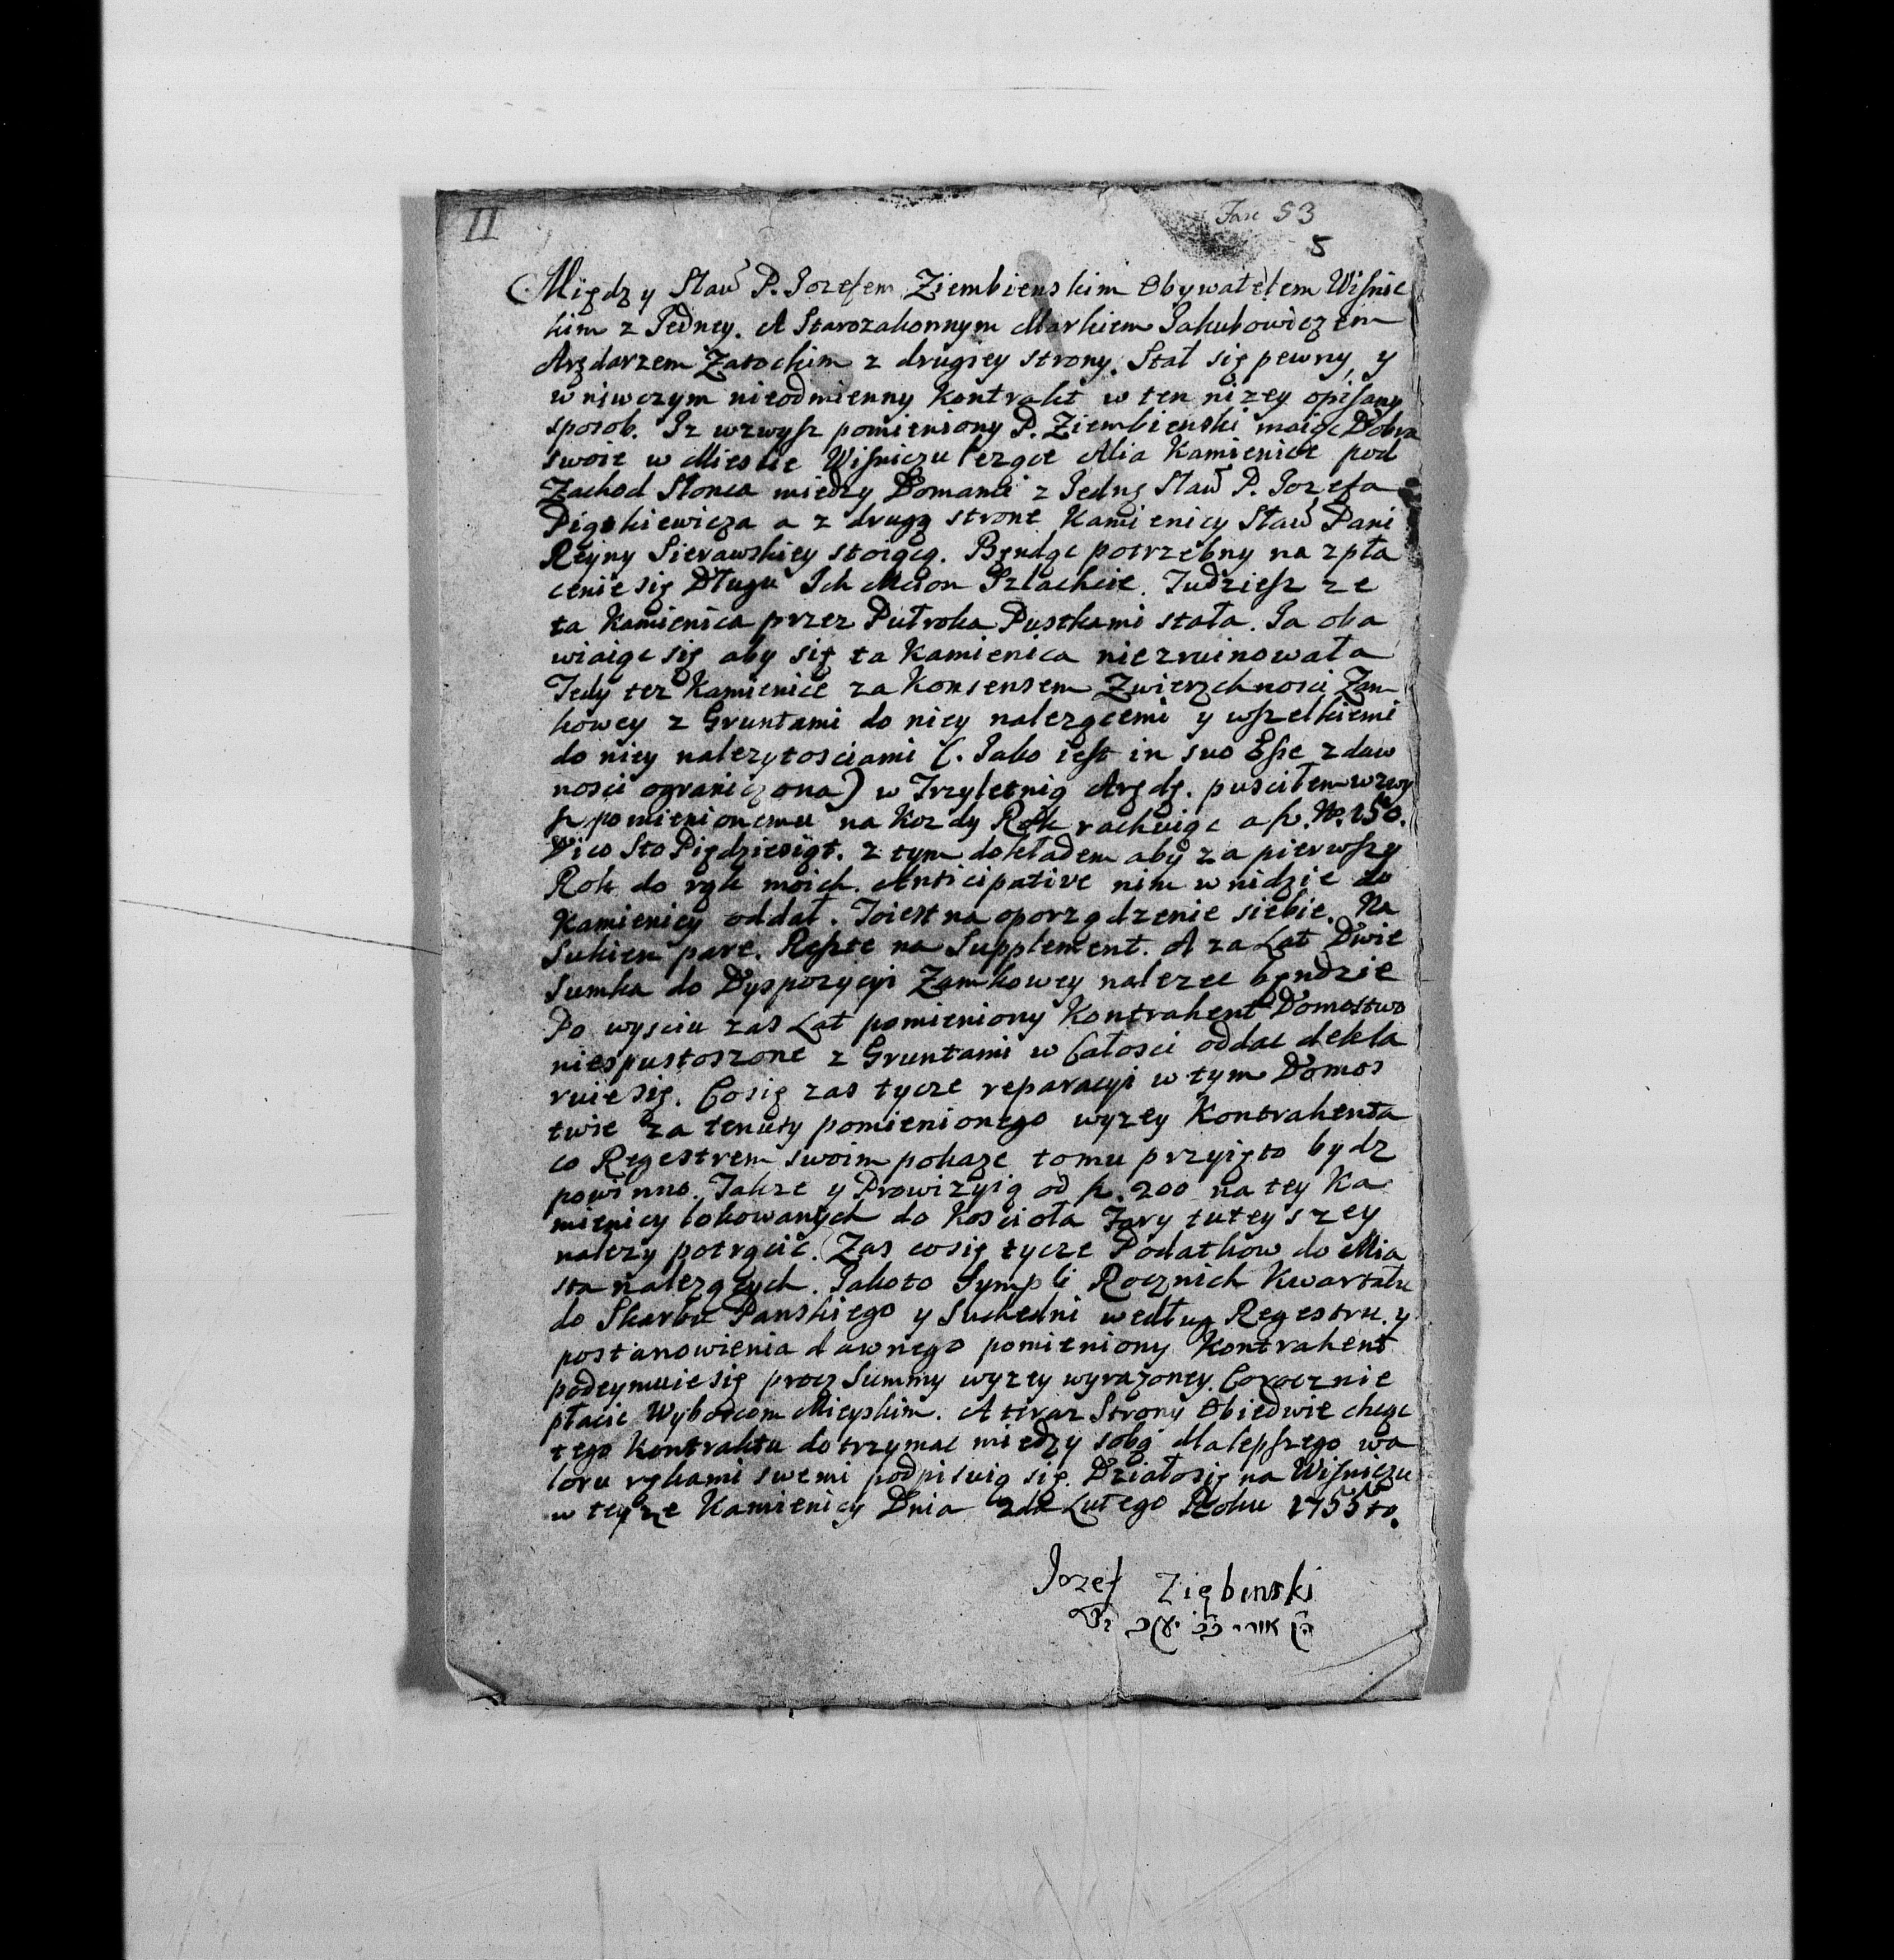 II
Fasc 53
5
Między Sław P. Jozefem Ziembienskim Obywatelem Wiſnic
kim z Jedney. A Starozakonnym Markiem Jakubowiczem
Arędarzem Zatockim z drugiey strony. Stał się pewny, y
w niwczym nieodmienny Kontrakt w ten nizey opiſany
sposob. Iz wzwyſz pomieniony P. Ziembienski maiąc Dobra
swoie w Miescie Wiſniczu lezące Alia Kamienice pod
Zachod Słonca miedzy Domami z Jednę Sław P. Jozefa
Pigukiewicza a z drugą strone Kamienicy Sław Pani
Reyny Sierawskiey stoiącą. Będąc potrzebny na zpła
cenie się Długu Ich Mcion Szlachcie. Tudzieſz ze
ta Kamienica przez Pułroka Pustkami stała. Ja oba
wiaiąc się aby się ta Kamienica niezruinowała
Tedy tez Kamienice za Konsensem Zwierzchnosci Zam
kowey z Gruntami do niey nalezącemi y wſzelkiemi
do niey nalezytosciami (. Jako ieſt in suo Eſse zdaw
nosci ograniczona) w Trzyletnią Arędę. puscilem wzwy
ſz pomienionemu na Kozdy Rok rachuiąc a ſz. No. 150.
Dico Sto Piędziesiąt. z tym dokładem aby za pierwſzy
Rok do rąk moich. Anticipative nim wnidzie do
Kamienicy oddał. Toiest na oporządzenie siebie. Na
Sukien pare. Reſzte na Supplement. A za Lat Dwie
Sumka do Dyspozycyi Zamkowey nalezec bęndzie
Po wysciu zas Lat pomieniony Kontrahent Domostwo
niespustoszone z Gruntami w Całosci oddac dekla
ruie się. Cosię zas tycze reparacyi w tym Domos
twie za tenuty pomienionego wyzey Kontrahenta
co Regestrem swoim pokaze tomu przyięto bydz
powinno. Takze y Prowizyią od ſz. 200 na tey Ka
mienicy lokowanych do Kosciola Fary tuteyszey
nalezy potrącic. Zas cosię tycze Podatkow do Mia
sta nalezących. Jakoto Sympli Rocznich Kwartału
do Skarbu Panskiego y Suchedni według Regestru. y
postanowienia dawnego pomieniony Kontrahent
podeymuie się procz Summy wyzey wyrazoney. Corocznie
płacic Wyborcom Mieyskim. A teraz Strony Obiedwie chcąc
tego Kontraktu dotrzymac miedzy sobą dla lepſzego wa
loru rękami swemi podpisuią się. Działosię na Wiſniczu
w teyze Kamienicy Dnia 2do Lutego Roku 1755to.
Jozef Ziębinski
אורי יעקב